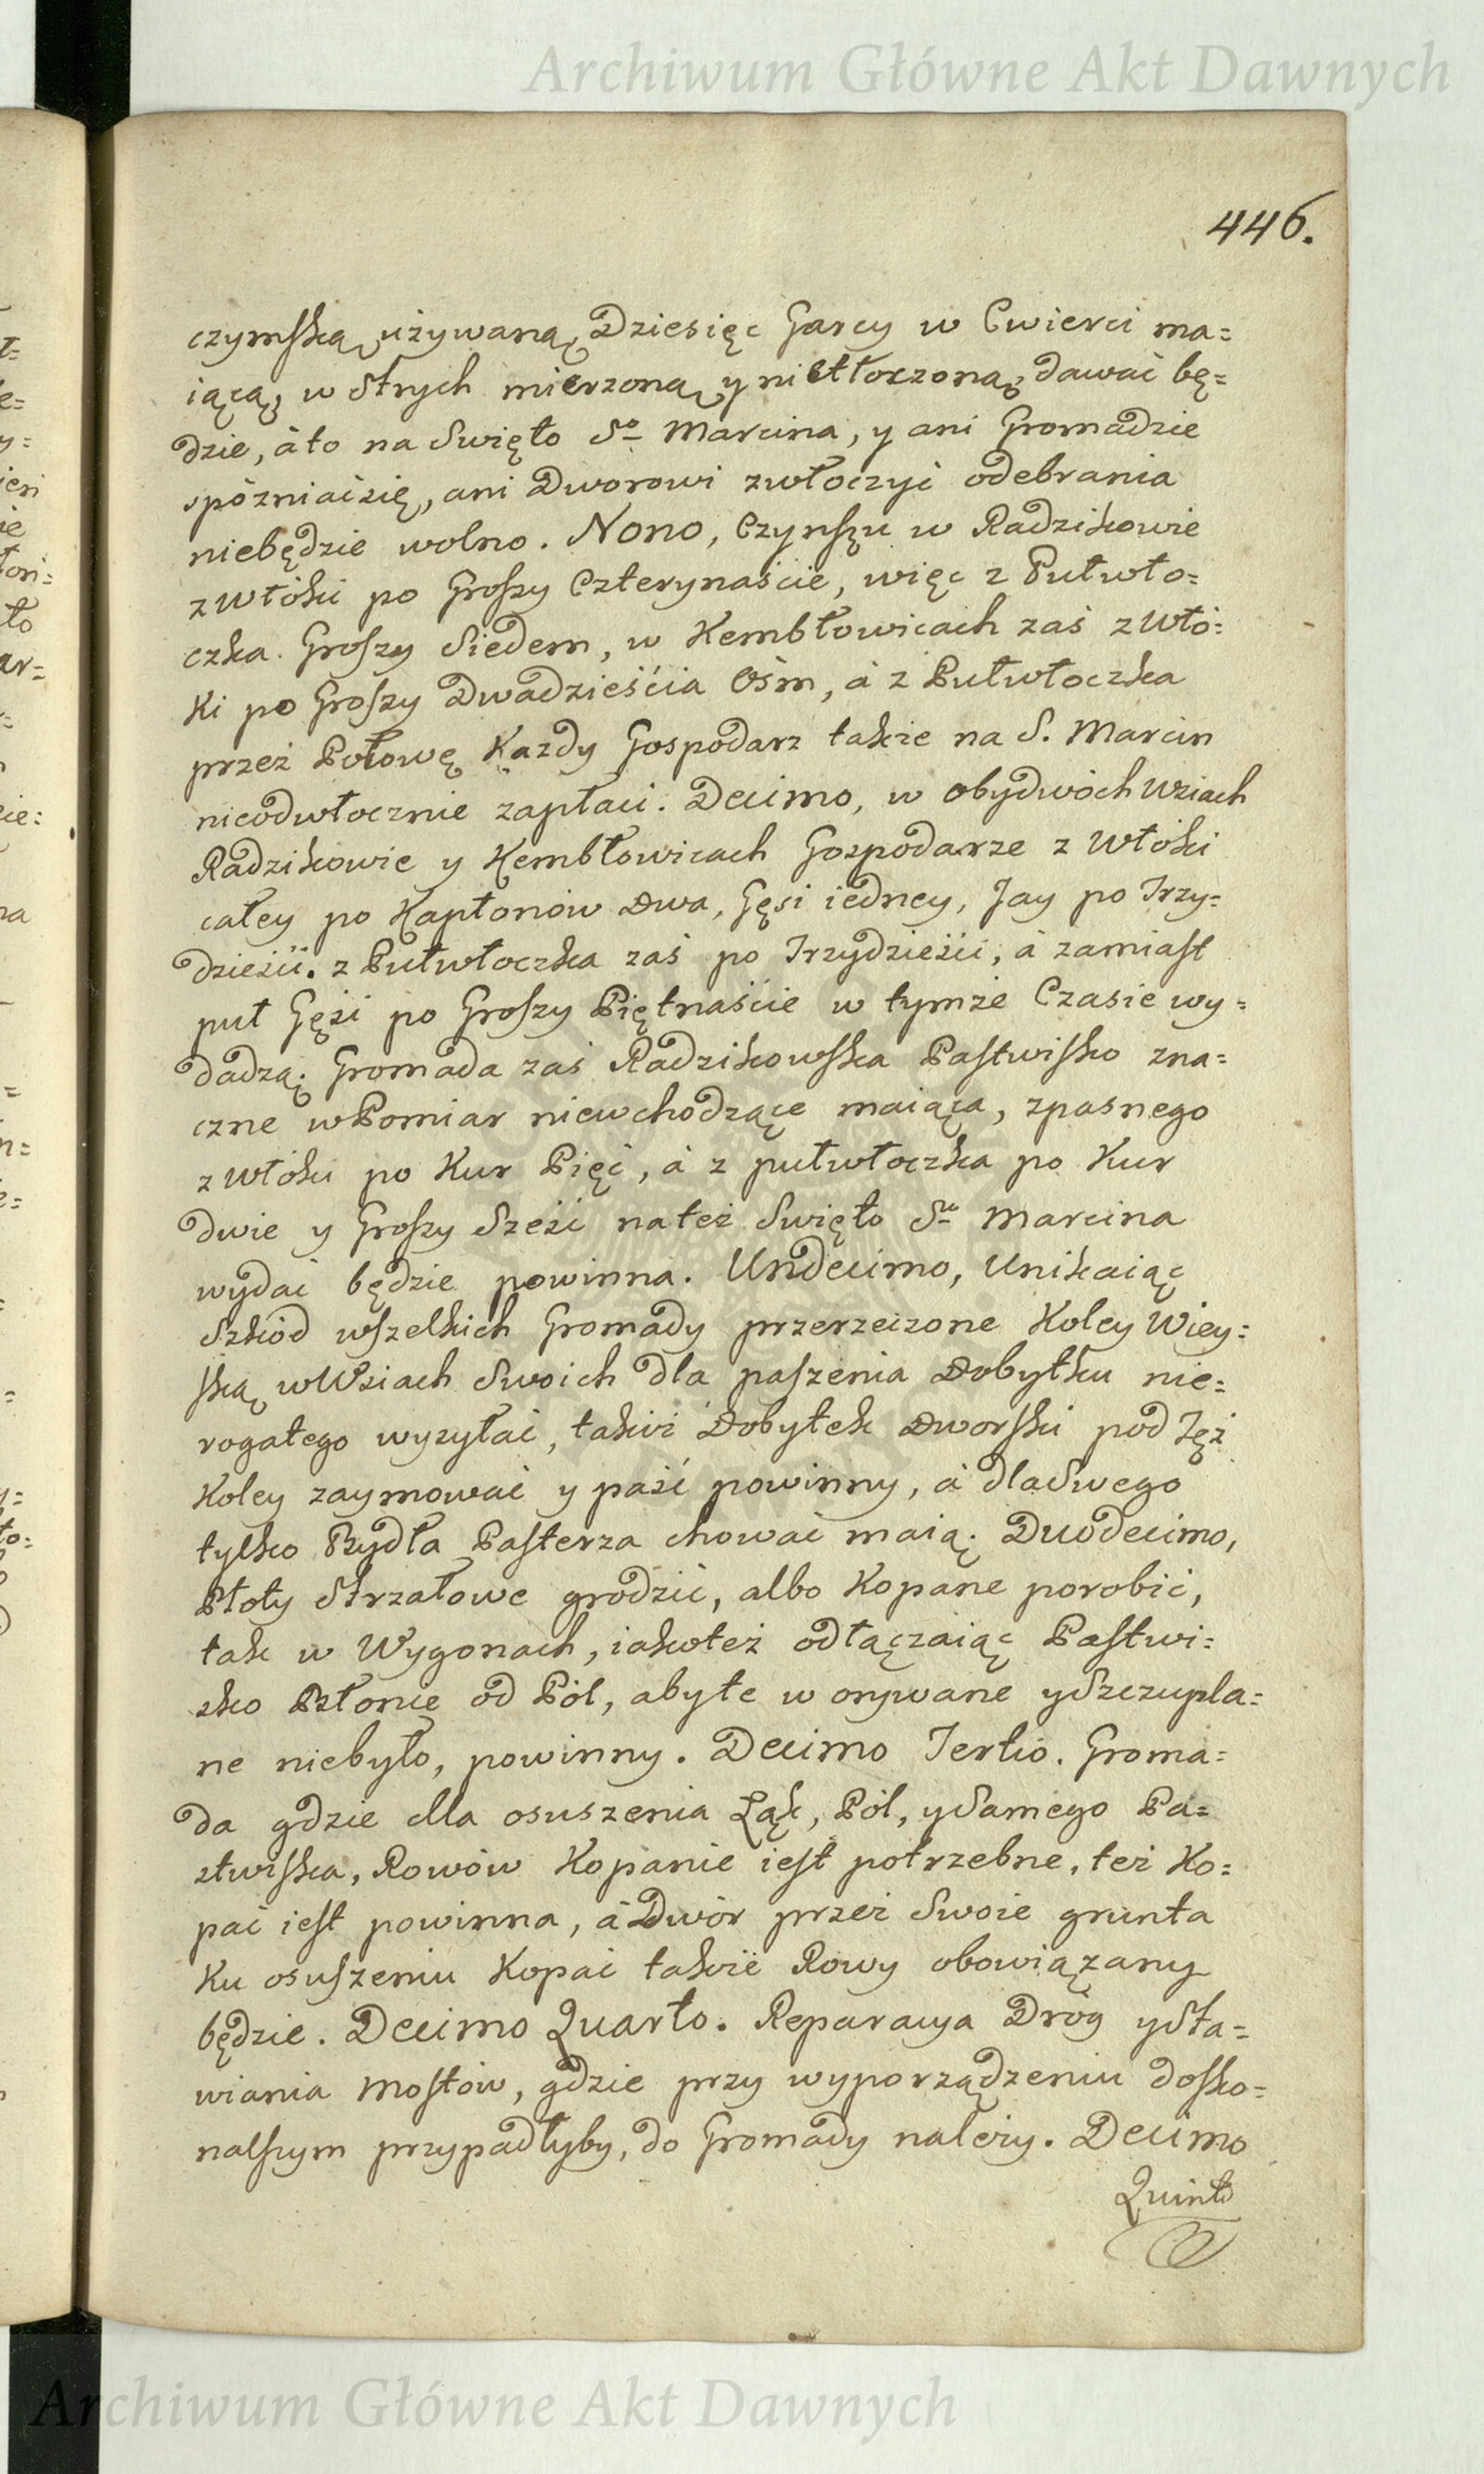 Archiwum Główne Akt Dawnych
446.
czymſką używaną, Dziesięc Garcy w Cwierci ma=
iącą, w Strych mierzoną y nietłoczoną, dawać bę=
dzie, áto na Swięto Sº Marcina, y ani Gromadzie
spózniaćsię, ani Dworowi zwłoczyć odebrania
niebędzie wolno. Nono, Czynſzu w Radzikowie
z Włóki po Groſzy Czterynaście, więc z Pułwło=
czka Groſzy Siedem, w Kembłowicach zaś z Włó=
ki po Groſzy Dwadzieścia Ośm, á z Pułwłoczka
przez Połowę Każdy Gospodarz także na S. Marcin
nieodwłocznie zapłaci. Decimo, w obydwóch Wsiach
Radzikowie y Kembłowicach Gospodarze z Włóki
całey po Kapłonów Dwa, Gęsi iedney, Jay po Trzy=
dzieści. z Pułwłoczka zaś po Trzydzieści, á zamiast
puł Gęsi po Groſzy Piętnaście w tymże Czasie wy=
dadzą. Gromada zaś Radzikowſka Paſtwiſko zna=
czne wPomiar niewchodzące maiąca, zpasnego
z Włóki po Kur Pięć, á z pułwłoczka po Kur
dwie y Groſzy Sześć nateż Swięto Sº Marcina
wydać będzie powinna. Undecimo, Unikaiąc
Szkód wſzelkich Gromady przerzeczone Koley Wiey=
ſką wWsiach Swoich dla paſzenia Dobytku nie=
rogatego wysyłać, także Dobytek Dworſki pod Tęż
Koley zaymować y paść powinny, á dlaSwego
tylko Bydła Paſterza chować maią. Duodecimo,
Płoty Strzałowe grodzić, albo Kopane porobić,
tak w Wygonach, iakoteż odłączaiąc Paſtwi=
sko Błonie od Pól, abyłe w orywane ySzczupla=
ne niebyło, powinny. Decimo Tertio. Groma=
da gdzie dla osuszenia Łąk, Pól, ySamego Pa=
stwiſka, Rowów Kopanie ieſt potrzebne, też Ko=
pać ieſt powinna, á Dwór przez Swoie grunta
Ku osuſzeniu Kopać takież Rowy obowiązany
będzie. Decimo Quarto. Reparacya Dróg ySta=
wiania Moſtów, gdzie przy wyporządzeniu doſko=
nalſzym przypadłyby, do Gromady należy. Decimo
Quinto
Archiwum Główne Akt Dawnych